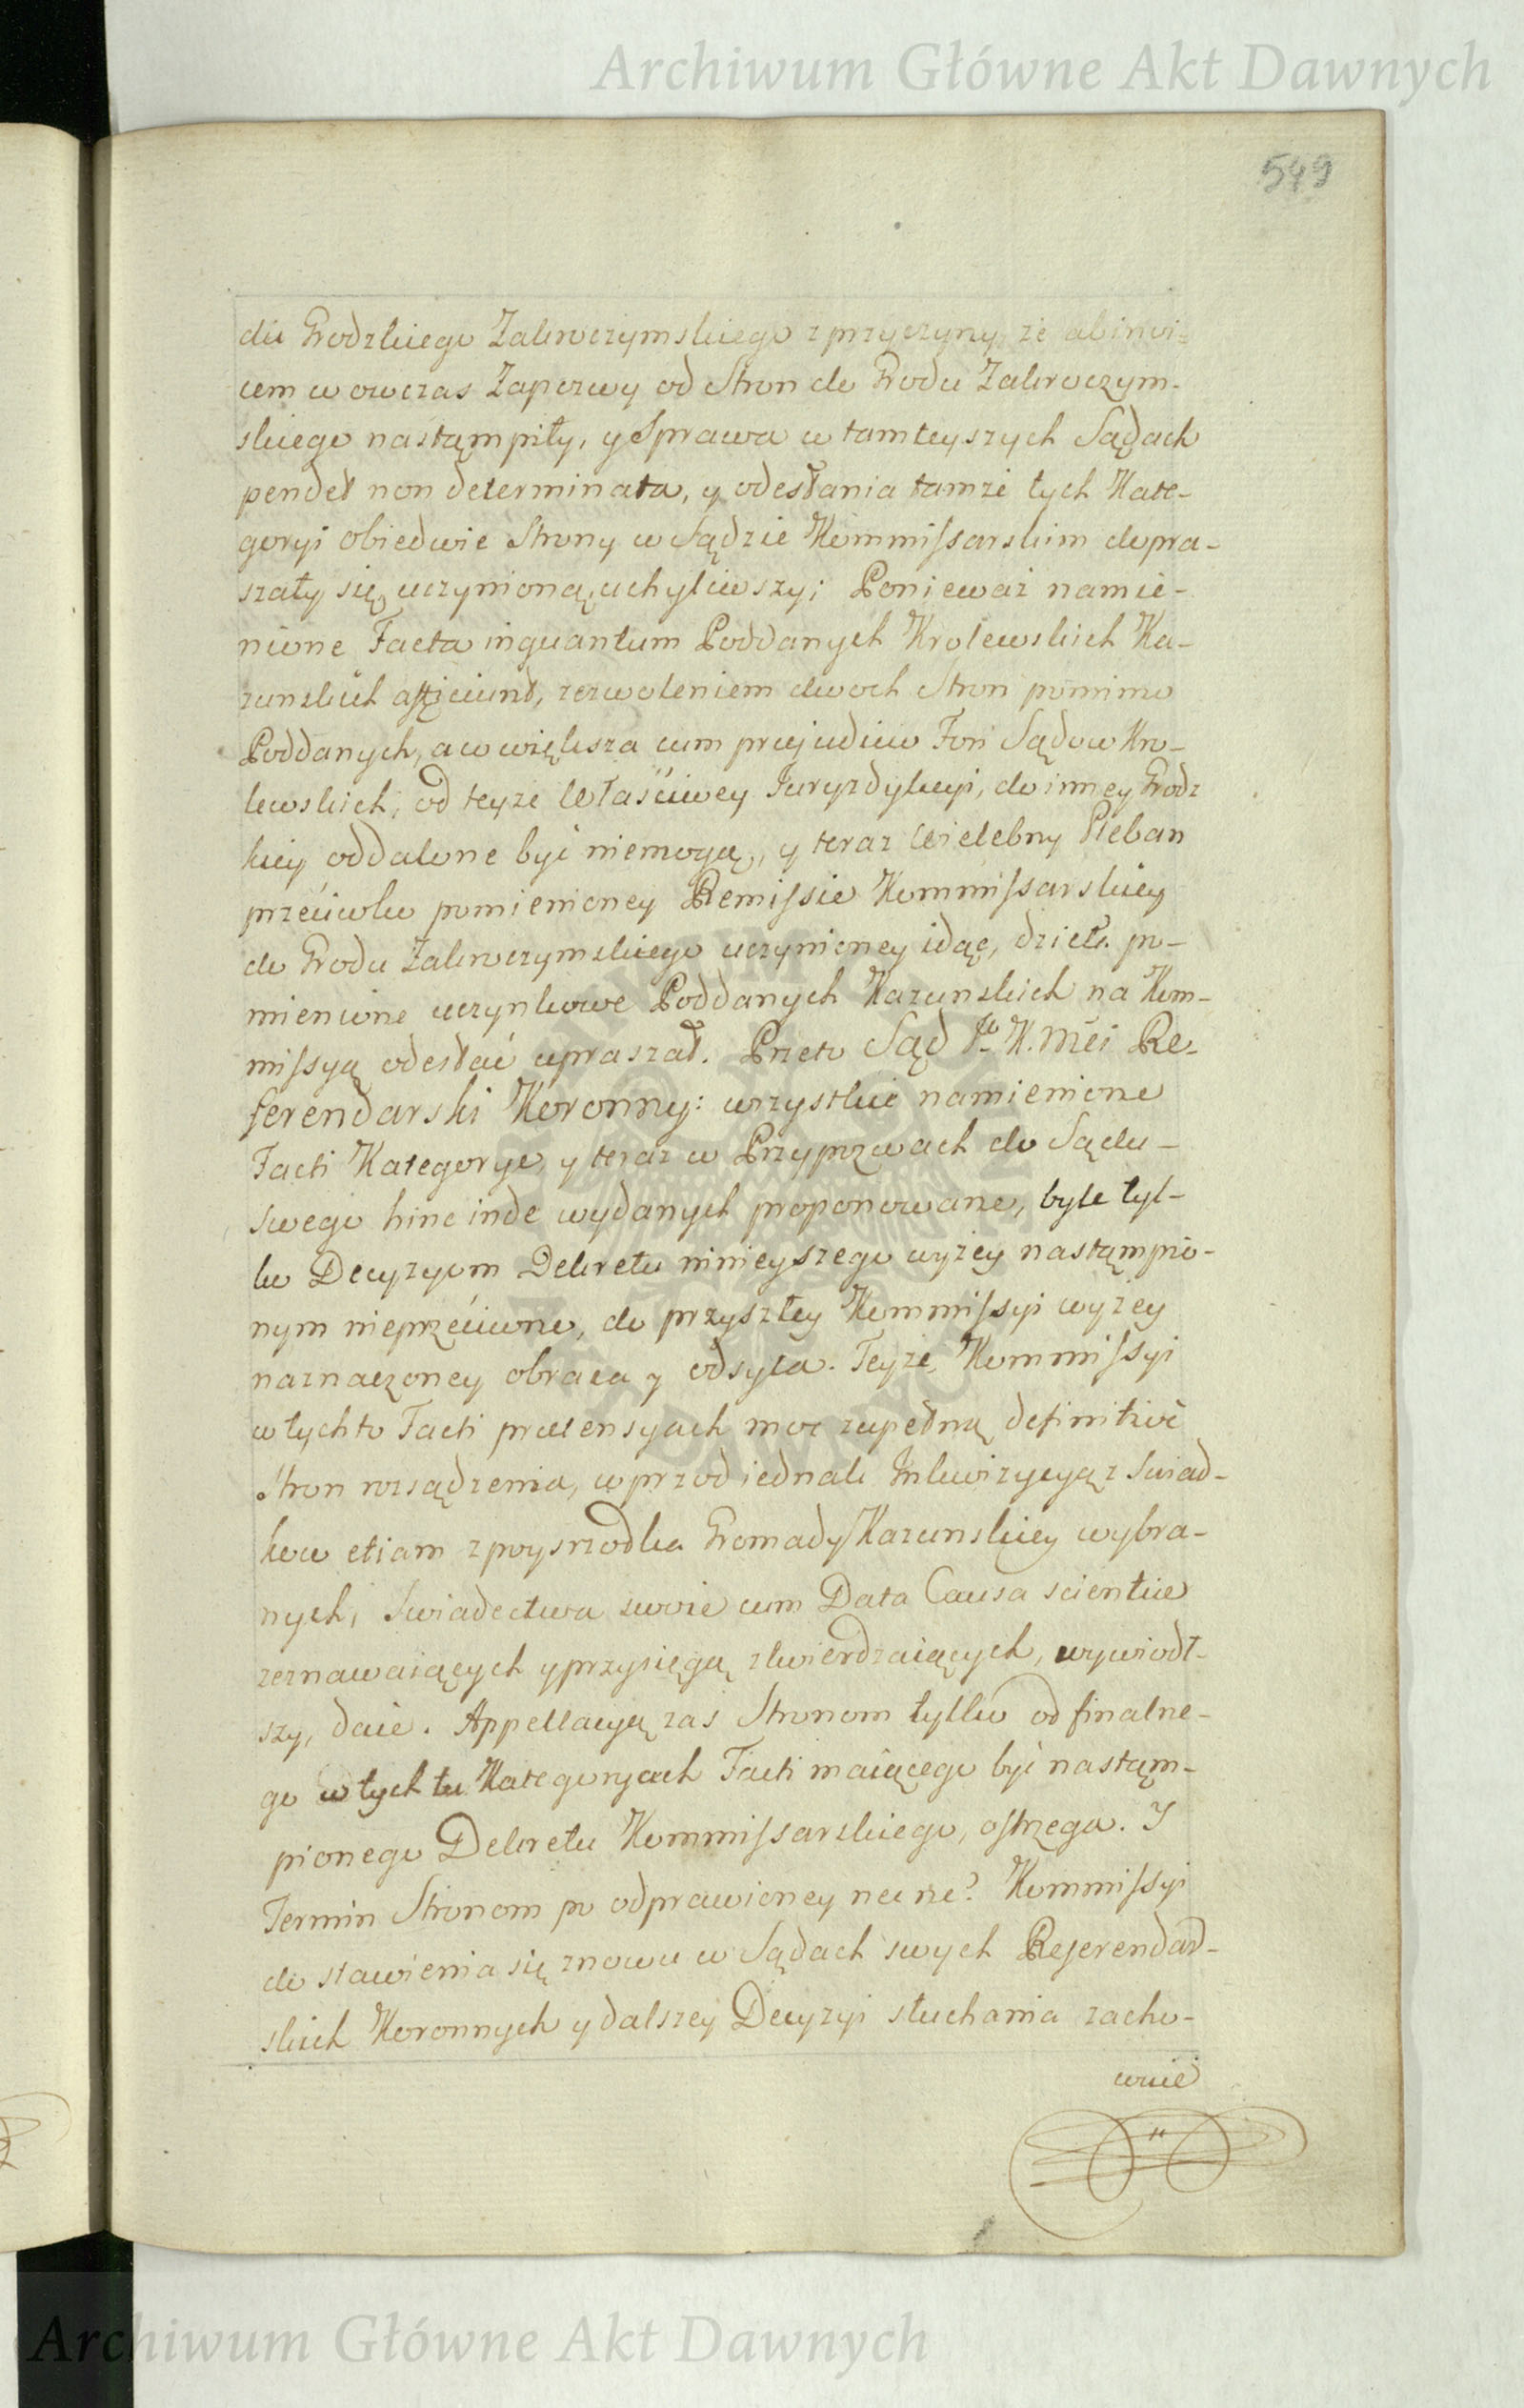 Archiwum Główne Akt Dawnych
549
du Grodzkiego Zakroczymskiego z przyczyny, że abinvi=
cem wowczas Zapozwy od Stron do Grodu Zakroczym-
skiego nastąmpiły, y Sprawa w tamteyszych Sądach
pendet non determinata, y odesłania tamże tych Kate-
goryi obiedwie Strony w Sądzie Kommissarskim dopra-
szały się, uczynioną, uchyliwszy; Ponieważ namie-
nione Facta inquantum Poddanych Krolewskich Ka-
zunskich afficiunt, zezwoleniem dwoch Stron pomimo
Poddanych, a co większa cum præjudicio Fori Sądow Kro-
lewskich, od teyże Właściwey Juryzdykcyi, do inney Grodz
kiey oddalone być niemogą, y teraz Wielebny Pleban
przeciwko pomienioney Remissie Kommissarskiey
do Grodu Zakroczymskiego uczynioney idąc, dzieła po-
mienione uczynkowe Poddanych Kazunskich na Kom-
missyą odesłać upraszał. Przeto Sąd J. K. Mci Re-
ferendarski Koronny: wszystkie namienione
Facti Kategorye, y teraz w Przypozwach do Sądu
swego hinc inde wydanych proponowane, byle tyl-
ko Decyzyom Dekretu ninieyszego wyżey nastąmpio-
nym nieprzeciwne, do przyszłey Kommissyi wyżey
naznaczoney obraca y odsyła. Teyże, Kommissyi
w tychto Facti prætensyach moc zupełną definitive
Stron rozsądzenia, wprzod iednak Inkwizycyą z Swiad-
kow etiam zpoysrzodka Gromady Kazunskiey wybra-
nych, Swiadectwa swoie cum Data Causa scientiæ
zeznawaiących y przysięgą ztwierdzaiących, wywiodł-
szy, daie. Appellacyą zas Stronom tylko od finalne-
go w tych tu Kategoryach Facti maiącego być nastąm-
pionego Dekretu Kommissarskiego, ostrzega. Y
Termin Stronom po odprawioney nec ne? Kommissyi
do stawienia się znowu w Sądach swych Referendar-
skich Koronnych y dalszey Decyzyi słuchania zacho-
wuie
Archiwum Główne Akt Dawnych